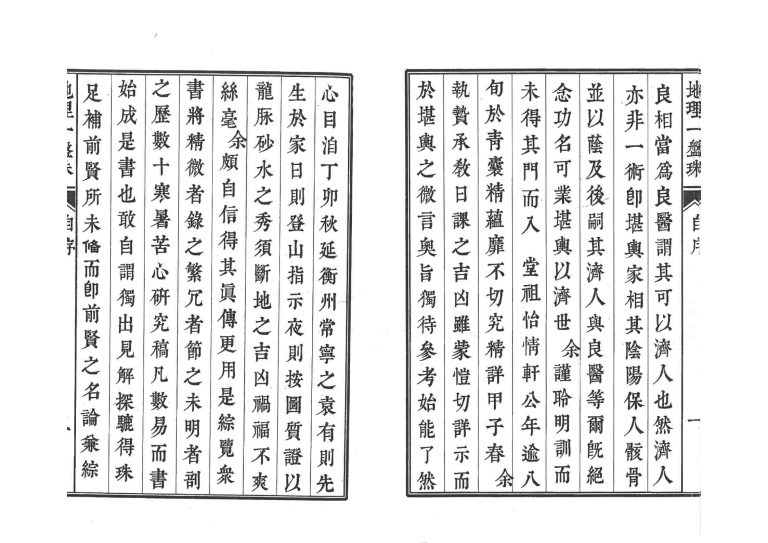 地理一盤珠
自序
一
良相當爲良醫謂其可以濟人也然濟人
亦非一術卽堪輿家相其陰陽保人骸骨
並以蔭及後嗣其濟人與良醫等爾旣絕
念功名可業堪輿以濟世余謹聆明訓而
未得其門而入 堂祖怡情軒公年逾八
旬於靑囊精蘊靡不切究精詳甲子春余
執贄承敎日課之吉凶雖蒙愷切詳示而
於堪輿之微言奧旨獨待參考始能了然
心目洎丁卯秋延衡州常寧之袁有則先
生於家日則登山指示夜則按圖質證以
龍脈砂水之秀須斷地之吉凶禍福不爽
絲毫余頗自信得其眞傳更用是綜覽衆
書將精微者錄之繁冗者節之未明者剖
之歷數十寒暑苦心硏究稿凡數易而書
始成是書也敢自謂獨出見解探驪得珠
足補前賢所未俻而卽前賢之名論兼綜
地理一盤珠
自序